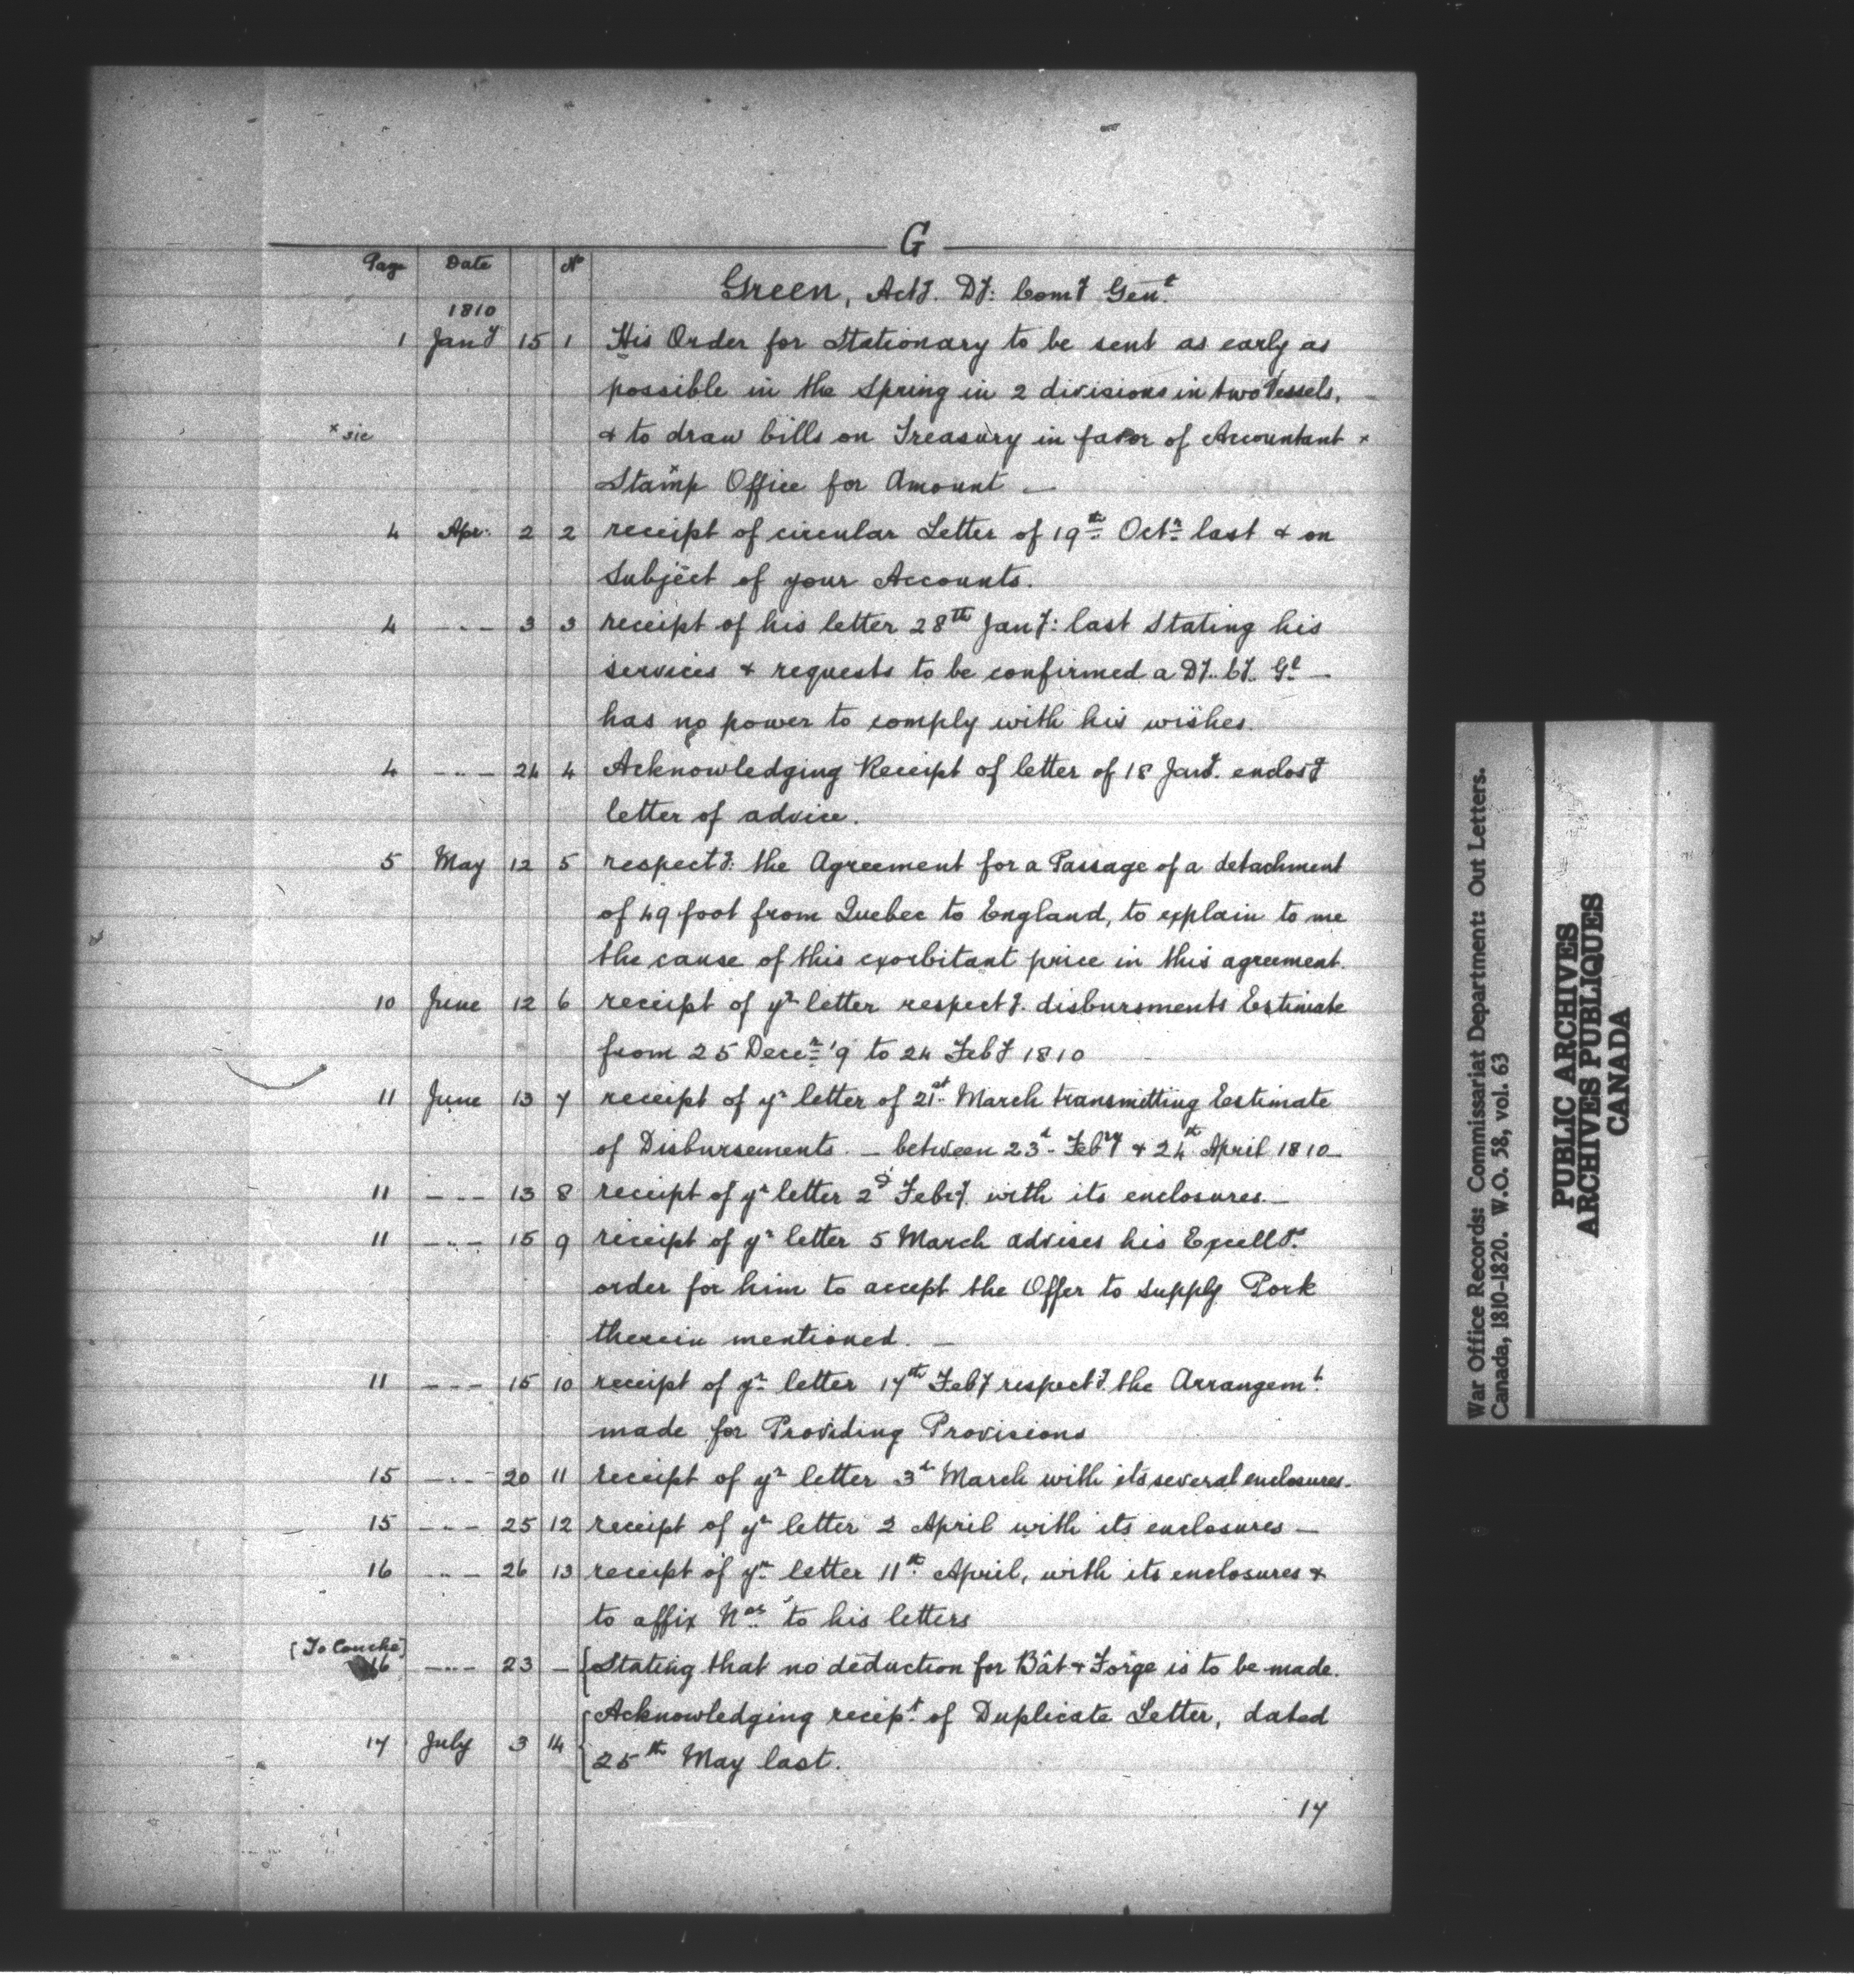 G
Page Date No
Green, Actg. Dy: Comy Genl.
1810
1 Jany 15 1 His Order for Stationary to be sent as early as
possible in the Spring in 2 divisions in two Vessels,
x sic & to draw bills on Treasury in favor of Accountant x
Stamp Office for Amount —
4 Apr: 2 2 receipt of circular Letter of 19th Octr last & on
Subject of your Accounts.
4 --- 3 3 receipt of his letter 28th Jany: last Stating his
services & requests to be confirmed a Dy. Cy. Gl —
has no power to comply with his wishes.
4 --- 24 4 Acknowledging Receipt of letter of 18 Jany. enclosg
letter of advice.
5 May 12 5 respectg: the Agreement for a Passage of a detachment
of 49 foot from Quebec to England, to explain to me
the cause of this exorbitant price in this agreement.
10 June 12 6 receipt of yr letter respectg. disbursments Estimate
from 25 Decer '9 to 24 Feby 1810
11 June 13 7 receipt of yr letter of 21st March transmitting Estimate
of Disbursements. — between 23d Feby & 24th April 1810 —
11 --- 13 8 receipt of yr letter 2d Febry. with its enclosures. —
11 --- 15 9 receipt of yr letter 5 March advises his Excelly.
order for him to accept the Offer to supply Pork
therein mentioned. —
11 --- 15 10 receipt of yr letter 17th Feby respectg the Arrangemt.
made for Providing Provisions
15 --- 20 11 receipt of yr letter 3d March with its several enclosures.
15 --- 25 12 receipt of yr letter 2 April with its enclosures —
16 --- 26 13 receipt of yr letter 11th April, with its enclosures &
to affix Nos to his letters
[To Couche]
16 --- 23 — {Stating that no deduction for Bât & Forge is to be made.
{Acknowledging receipt of Duplicate Letter, dated
17 July 3 14 25th May last.
17
War Office Records: Commissariat Department: Out Letters.
Canada, 1810-1820. W.O. 58, vol. 63
PUBLIC ARCHIVES
ARCHIVES PUBLIQUES
CANADA